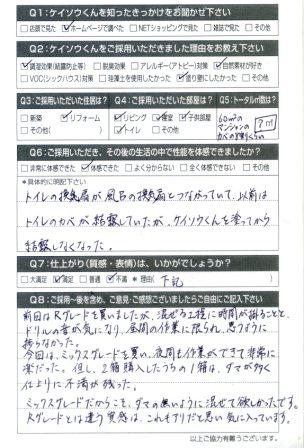 Q1:ケイソウくんを知ったきっかけをお聞かせ下さい
□店頭で見た ☑ホームページで調べた □NETショッピングで見た □雑誌で見た □その他
Q2:ケイソウくんをご採用いただきました理由をお教え下さい
☑調湿効果(結露防止等) □脱臭効果 □アレルギー(アトピー)対策 ☑自然素材が好き
□VOC(シックハウス)対策 □珪藻土を使用したかった ☑塗り壁にしたかった □その他
Q3:ご採用いただいた住居は?
□新築 ☑リフォーム
□その他( )
Q4:ご採用いただいた部屋は?
☑リビング ☑寝室 ☑子供部屋
☑トイレ □その他( )
Q5:トータル㎡数は?
60㎡の
マンションの
?㎡
Q6:ご採用いただき、その後の生活の中で性能を体感できましたか?
□非常に体感できた ☑体感できた □よく分からない □全く体感できない □その他
*具体的に明記下さい
トイレの換気扇が風呂の換気扇とつながっていて、以前は
トイレのカベが結露していたが、ケイソウくんを塗ってから
結露しなくなった。
Q7:仕上がり(質感・表情)は、いかがでしょうか?
□大満足 ☑満足 □普通 ☑不満 *理由( 下記
Q8:ご採用〜後を含め、ご意見・ご感想ございましたらご自由にご記入下さい
前回はRグレードを買いましたが、混ぜる工程に時間が掛ることと、
ドリルの音が気になり、昼間の作業に限られ、思うように
捗らなかった。
今回は、ミックスグレードを買い、夜間も作業ができて非常に
楽だった。但し、2箱購入したうちの1箱は、ダマが多く
仕上りに不満が残った。
ミックスグレードだからこそ、ダマの無いように混ぜて欲しかったです。
Rグレードとは違う質感は、これもアリだと思い気に入っています。
以上ご協力有難うございます。